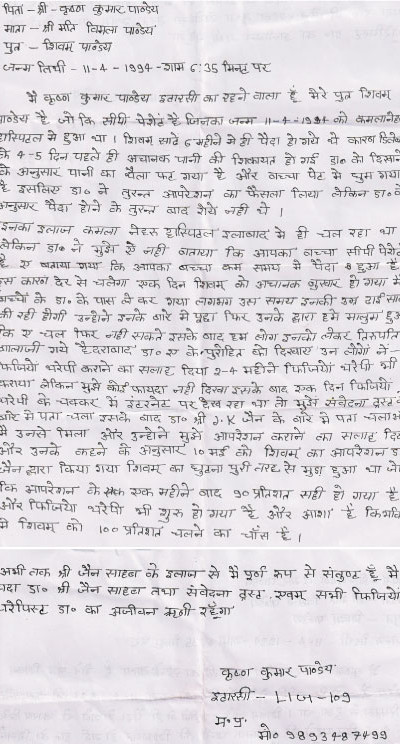 पिता - श्री - कृष्णा कुमार पाण्डेय
माता - श्री मति विमला पाण्डेय
पुत्र - शिवम् पाण्डेय
जन्म तिथी - 11-4-1994 - शाम 6:35 मिनट पर
मै कृष्णा कुमार पाण्डेय इटारसी का रहने वाला हूँ मेरे पुत्र शिवम्
पाण्डेय है जो कि सीपी पेशेंट है जिनका जन्म 11-4-1994 को कमलानेहरू
हास्पिटल मे हुआ था । शिवम् साढे 6 महीने मे ही पैदा हो गये थे कारण
के 4-5 दिन पहले ही अचानक पानी की शिकायत हो गई डा० को दिखाने
के अनुसार पानी का थैला फट गया है और बच्चा पेट मे घुम गया
है इसलिए डा० ने तुरन्त आपरेशन का फैसला लिया लेकिन डा० के
अनुसार पैदा होने के तुरन्त बाद रोये नही थे ।
इनका इलाज कमला नेहरू हास्पिटल इलाहाबाद मे ही चल रहा था
लेकिन डा० ने मुझे ए नही बताया कि आपका बच्चा सीपी पेशेंट
है ए बताया गया कि आपका बच्चा कम समय मे पैदा हुआ है
इस कारण देर से चलेगा एक दिन शिवम् को अचानक बुखार हो गया मै
बच्चों के डा० के पास ले कर गया लगभग उस समय इनकी उम्र ढाई साल
की रही होगी उन्होंने उनके बारे मे पूछा फिर उनके द्वारा हमे मालुम हुआ
कि ए चल फिर नही सकते इसके बाद हम लोग इनको लेकर तिरुपति
बालाजी गये हैदराबाद डा० ए के पुरोहित को दिखाए उन लोगों ने -
फिजियो थरेपी कराने का सलाह दिया 2-4 महीने फिजियो थरेपी भी
कराया लेकिन मुझे कोई फायदा नही दिखा इसके बाद एक दिन फिजियो
थरेपी के चक्कर मे इंटरनेट पर देख रहा था तो मुझे संवेदना ट्रस्ट के
बारे मे पता चला इसके बाद डा० श्री J.K जैन के बारे मे पता चला
मै उनसे मिला और उन्होंने मुझे आपरेशन कराने का सलाह दिए
और उनके कहने के अनुसार 10 मई को शिवम् का आपरेशन डा०
जैन द्वारा किया गया शिवम् का घुटना पुरी तरह से मुड़ा हुआ था जो
कि आपरेशन के एक महीने बाद 90 प्रतिशत सही हो गया है
और फिजियो थरेपी भी शुरू हो गया है और आशा है कि
मे शिवम् को 100 प्रतिशत चलने का चाँस है ।
अभी तक श्री जैन साहब के इलाज से मै पूर्ण रूप से संतुष्ट हूँ मै
सदा डा० श्री जैन साहब तथा संवेदना ट्रस्ट एवम् सभी फिजियो
थरेपिस्ट डा० का अजीवन ऋणी रहूँगा
कृष्णा कुमार पाण्डेय
इटारसी - LIG-109
म०प्र०
मो० 9893487499